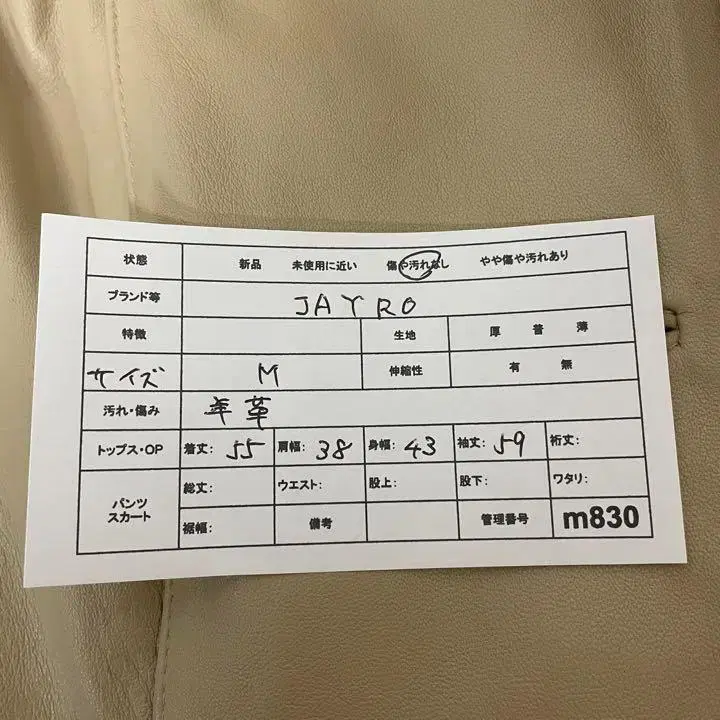 状態 新品 未使用に近い 傷や汚れなし やや傷や汚れあり
ブランド等 JAYRO
特徴 生地 厚 普 薄
サイズ M 伸縮性 有 無
汚れ・傷み 羊革
トップス・OP 着丈: 55 肩幅: 38 身幅: 43 袖丈: 59 裄丈:
パンツ スカート 総丈: ウエスト: 股上: 股下: ワタリ:
裾幅: 備考 管理番号 m830